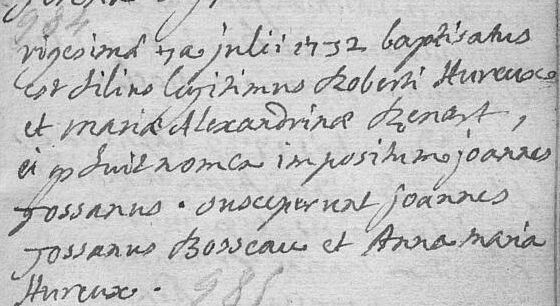 984
vigesimâ 7a julii 1732 baptisatus
est filius legitimus Roberti Hureux
et mariæ Alexandrinæ Renart,
ei fuit nomen impositum joannes
jossanus. susceperunt joannes
jossanus Bosseau et Anna maria
Hureux.
985